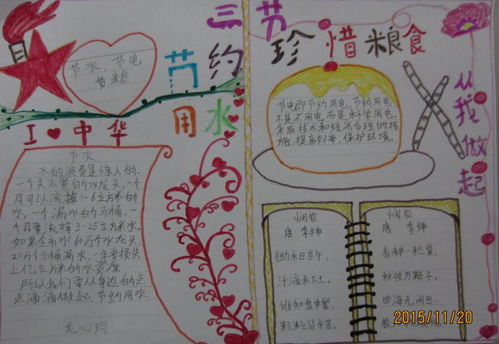 三节
约
节
用
水
节水、节电
节粮
I❤中华
节水
水的浪费是惊人的,
一个关不紧的水龙头,一个
月可以流掉1-6立方米的
水,一个漏水的马桶,一
个月要流掉3-25立方米水,
如果全市水60万个水龙头
20万个马桶漏水,一年要损失
上亿立方米的水资源
所以我们要从身边的点
点滴滴做起,节约用水
珍惜粮食
从我做起
节电即节约用电,节约用电
不是不用电,而是科学用电,
采取技术和经济合理的措
施,提高效率,保护环境
悯农
唐 李绅
锄禾日当午,
汗滴禾下土。
谁知盘中餐,
粒粒皆辛苦。
悯农
唐 李绅
春种一粒粟,
秋收万颗子。
四海无闲田,
农
2015/11/20